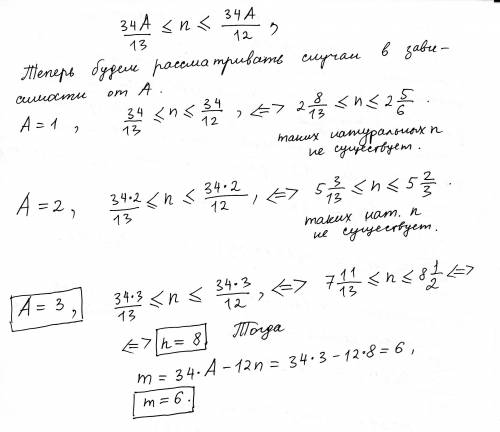 34A/13 ≤ n ≤ 34A/12,
Теперь будем рассматривать случаи в зави-
симости от A.
A = 1, 34/13 ≤ n ≤ 34/12, <=> 2 8/13 ≤ n ≤ 2 5/6.
таких натуральных n
не существует.
A = 2, 34·2/13 ≤ n ≤ 34·2/12, <=> 5 3/13 ≤ n ≤ 5 2/3.
таких нат. n
не существует.
A = 3, 34·3/13 ≤ n ≤ 34·3/12, <=> 7 11/13 ≤ n ≤ 8 1/2 <=>
<=> n = 8 Тогда
m = 34·A - 12n = 34·3 - 12·8 = 6,
m = 6.